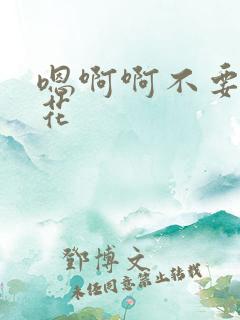 嗯啊啊不要
花
鄧博文
未经同意禁止转载